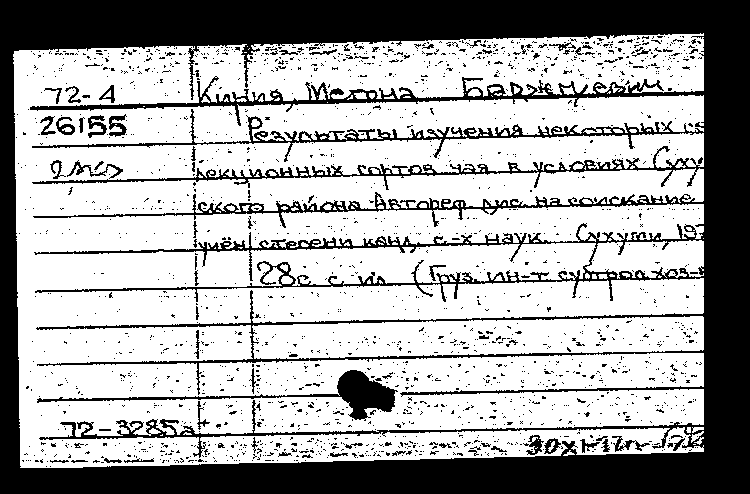 72-4 Кирия, Мегона Барджмиевич.
26155 Результаты изучения некоторых се
лекционных сортов чая в условиях Суху
ского района Автореф. дис. на соискание
учён степени канд. с.-х наук. Сухуми, 197
28с. с ил (Груз. ин-т субтроп. хоз-в
72-3285а